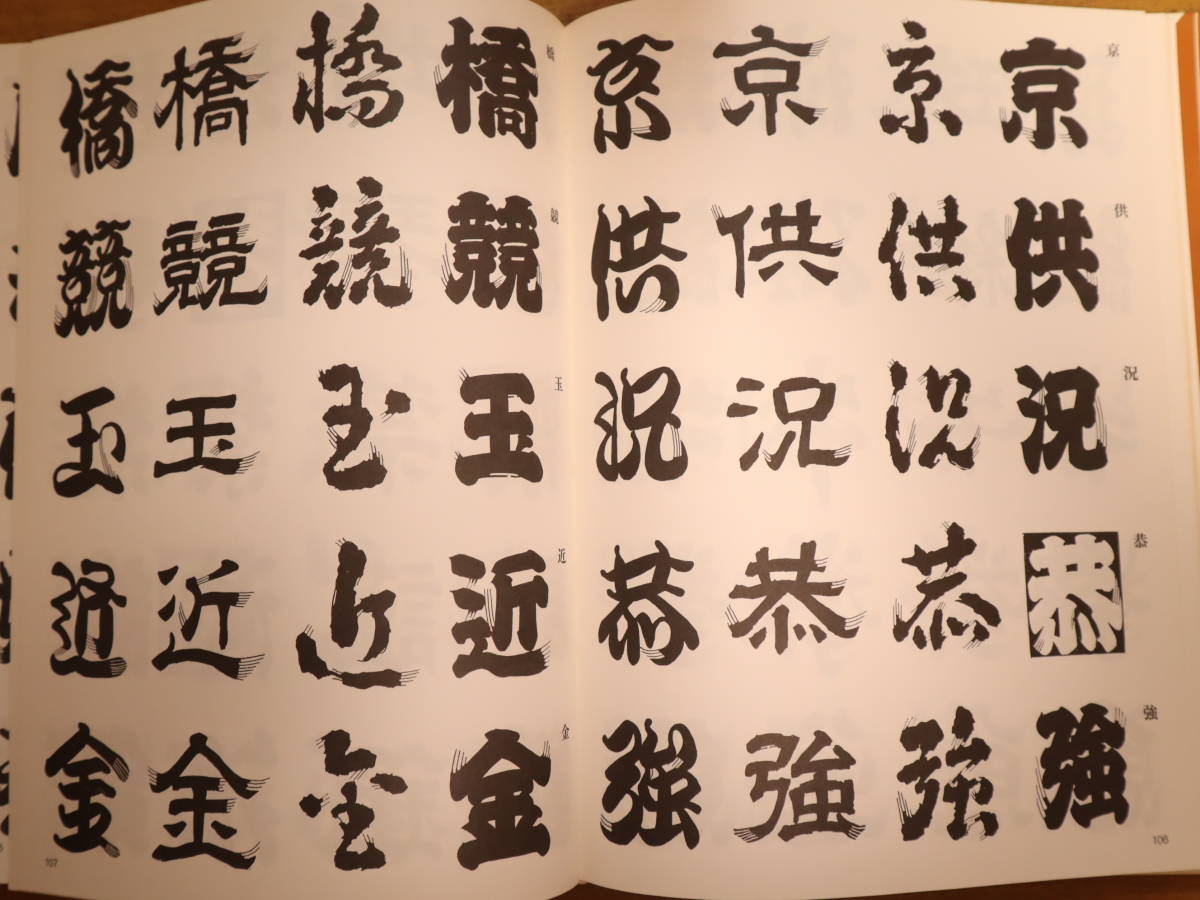 京 京 京 京 京
供 供 供 供 供
況 況 況 況 況
恭 恭 恭 恭 恭
強 強 強 強 強
106
橋 橋 橋 橋 橋
競 競 競 競 競
玉 玉 玉 玉 玉
近 近 近 近 近
金 金 金 金 金
107